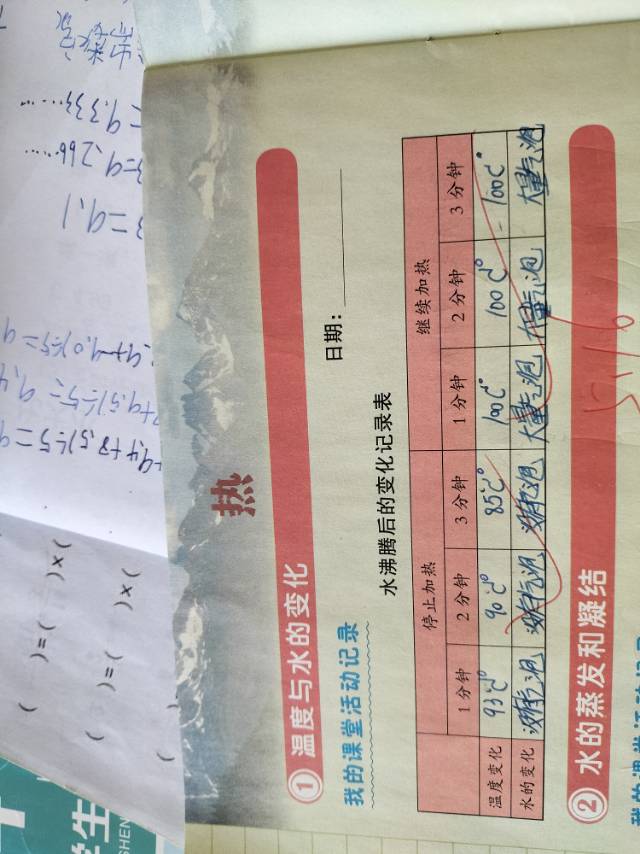 热
① 温度与水的变化
我的课堂活动记录
日期:
水沸腾后的变化记录表
停止加热 继续加热
1分钟 2分钟 3分钟 1分钟 2分钟 3分钟
温度变化 93℃ 90℃ 85℃ 100℃ 100℃ 100℃
水的变化 没有气泡 没有气泡 没有气泡 大量气泡 大量气泡 大量气泡
② 水的蒸发和凝结
( )=( )×(
( )=( )×(
=9.1
=9.266……
=9.333……
生
SHEN